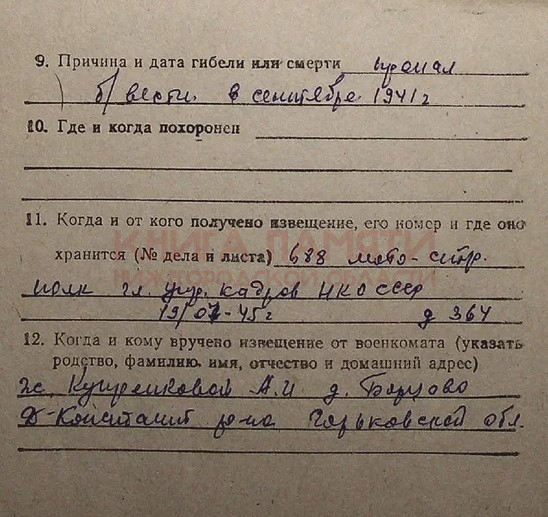 9. Причина и дата гибели или смерти пропал
б/вести в сентябре 1941 г
10. Где и когда похоронен
11. Когда и от кого получено извещение, его номер и где оно
хранится (№ дела и листа) 688 мото-стр.
полк гл. упр. кадров НКО СССР
19/07-45 г д 364
12. Когда и кому вручено извещение от военкомата (указать
родство, фамилию, имя, отчество и домашний адрес)
ж. А.И д. Борцово
Д-Констант р-на Горьковской обл.
КНИГА ПАМЯТИ
НИЖЕГОРОДСКОЙ ОБЛАСТИ